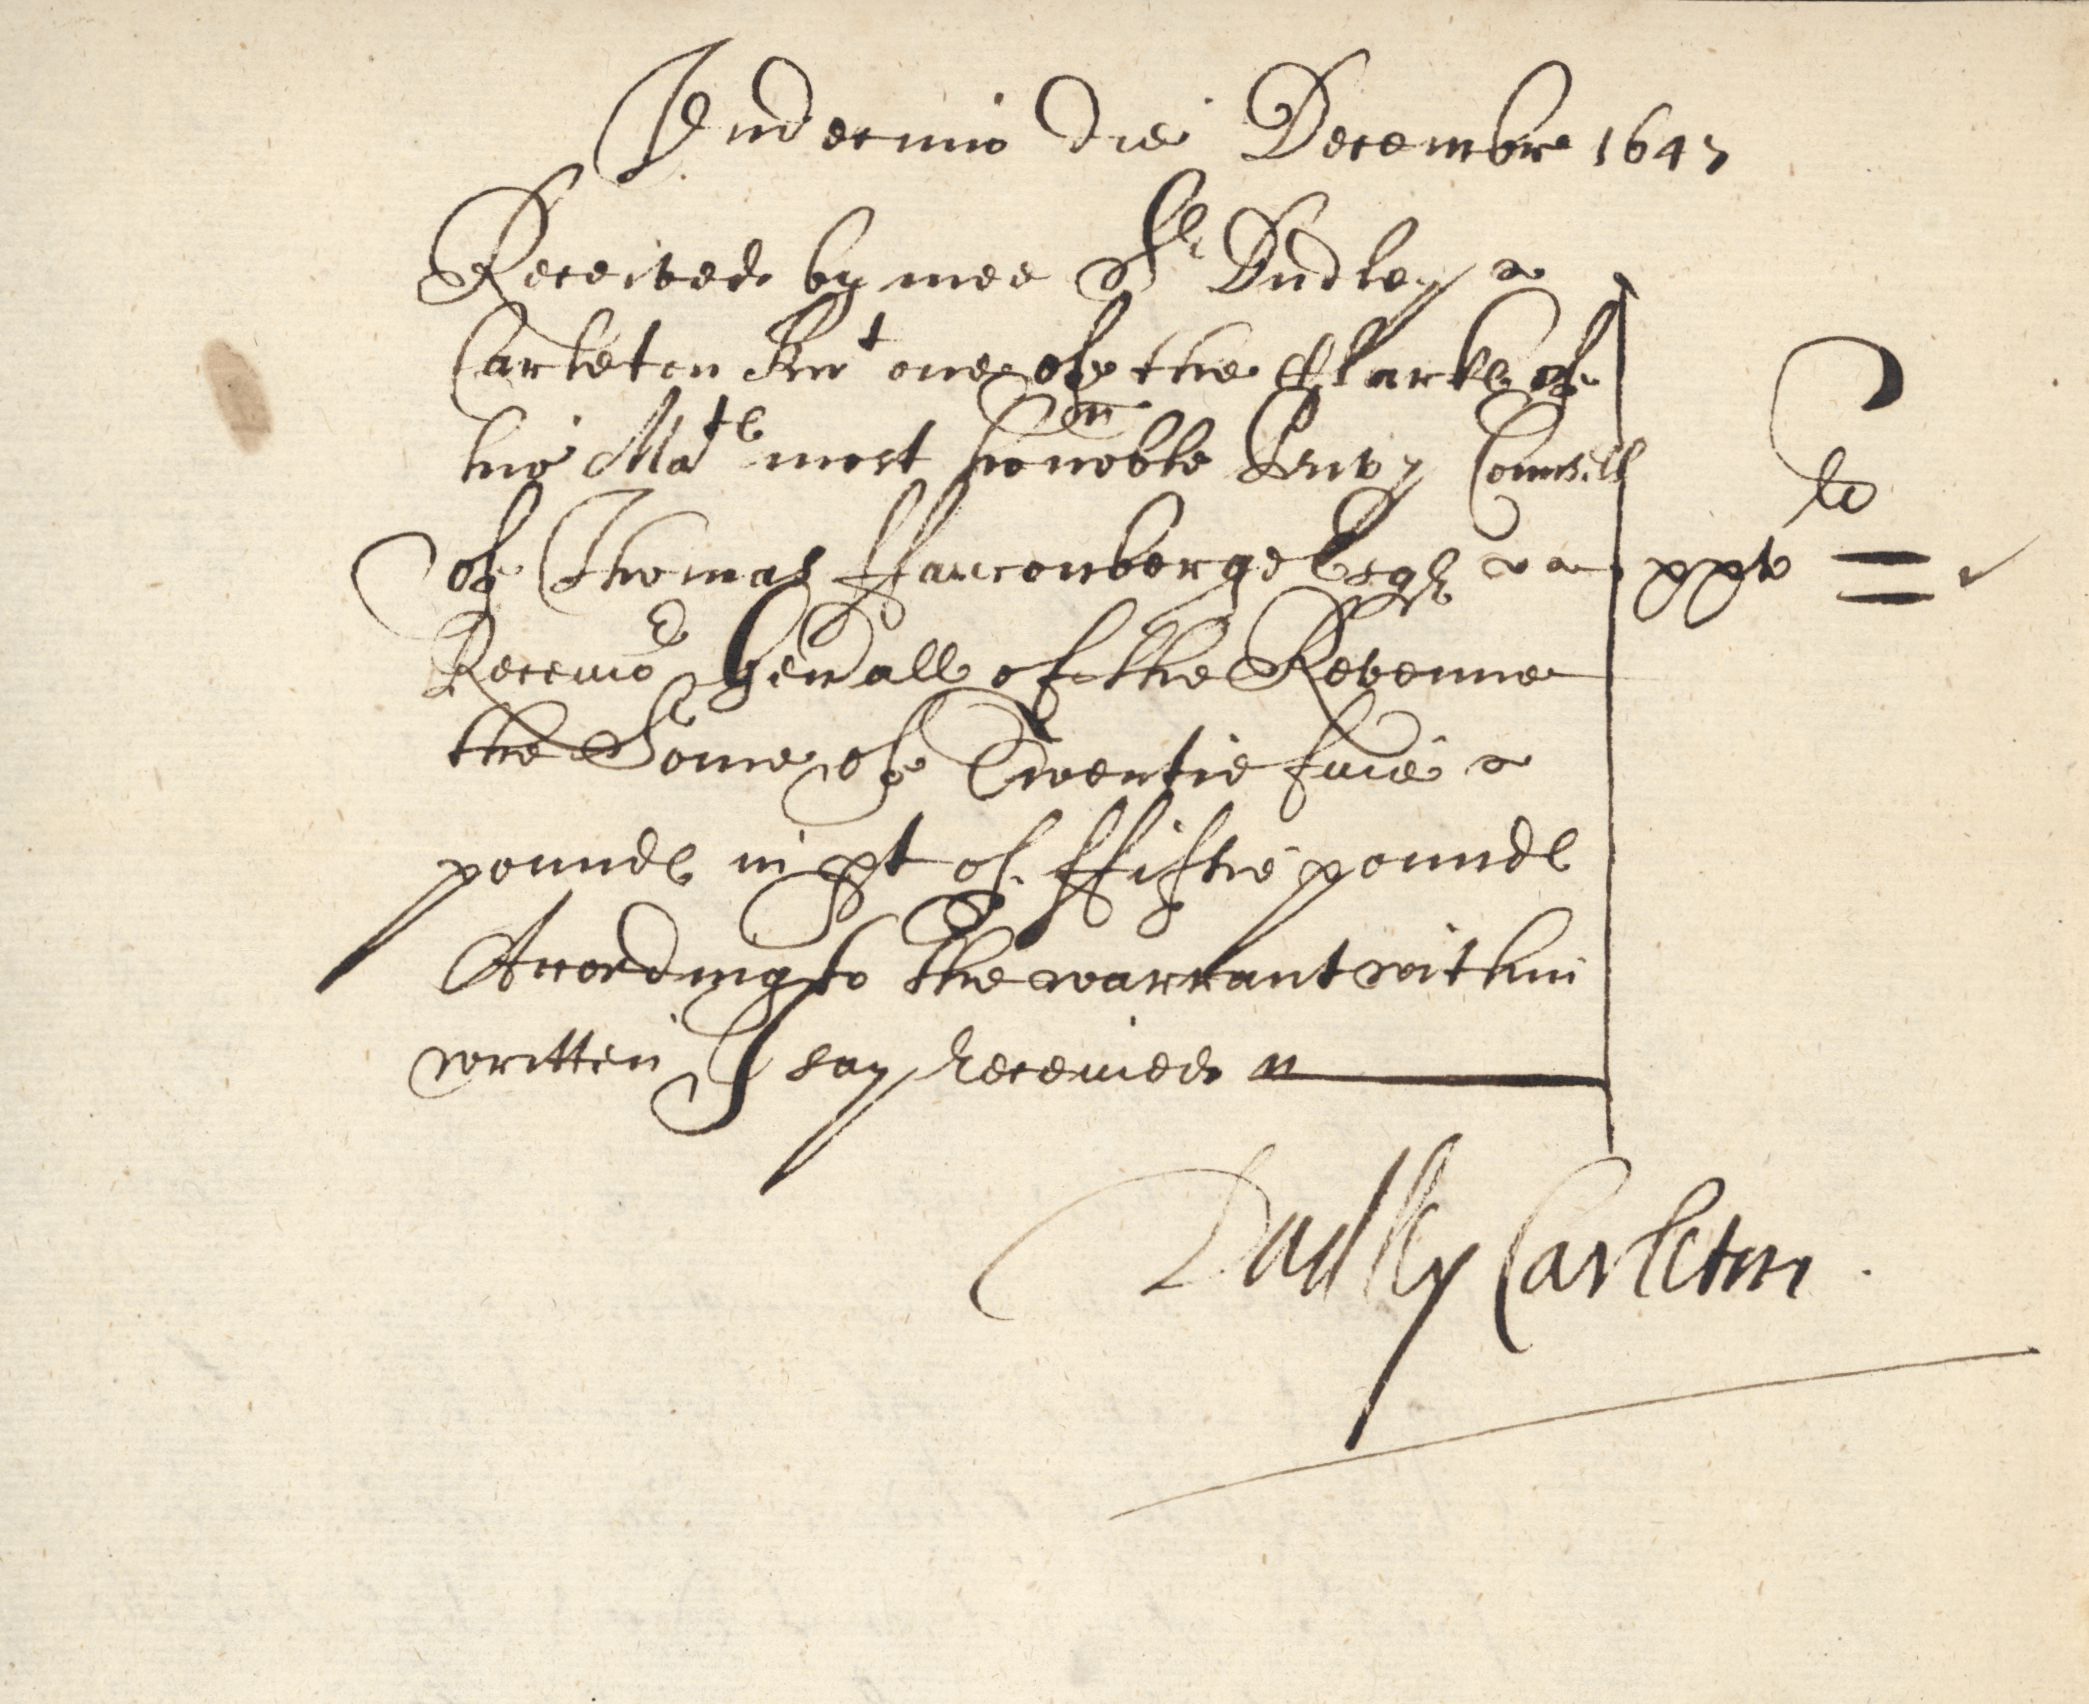 Undecimo die Decembr 1647
Received by mee Sr Dudley
Carleton Knt one of the Clarkes of
his Mates most honoble Privy Counsell
of Thomas ffauconberge Esqr
Receivor Genrall of the Revenue
the Some of Twentie five
pounds in pt of ffiftie pounds
According to the warrant within
written I say received
li
xxv
Dudley Carleton